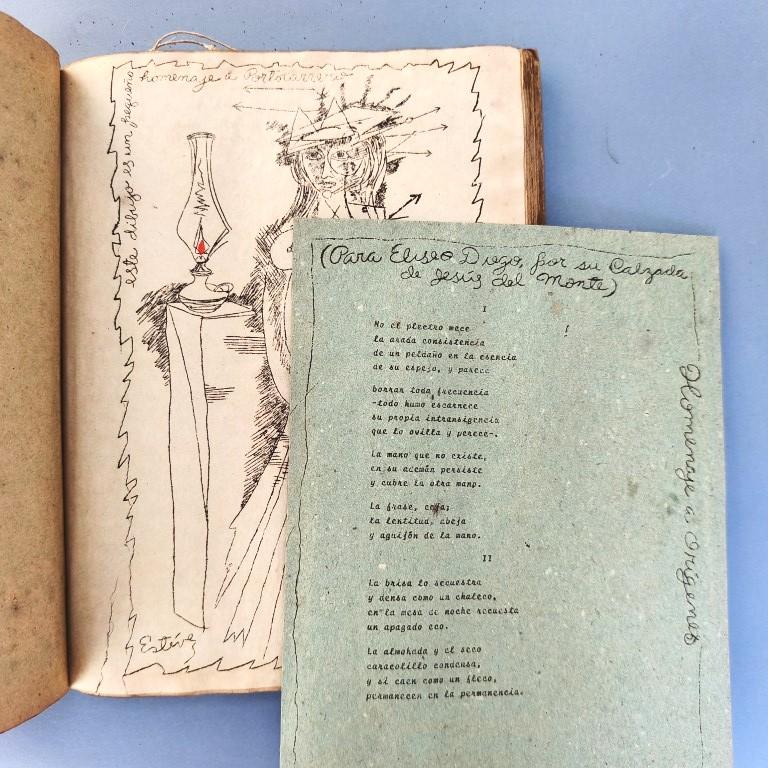 homenaje a Portocarrero
este dibujo es un pequeño
Estévez
(Para Eliseo Diego, por su Calzada
de Jesús del Monte)
Homenaje a Orígenes
I
No el plectro mece
la arada consistencia
de un peldaño en la esencia
de su espejo, y parece
borrar toda frecuencia
-todo humo escarnece
su propia intransigencia
que lo ovilla y perece-.
La mano que no existe,
en su ademán persiste
y cubre la otra mano.
La frase, ceja;
la lentitud, abeja
y aguijón de la mano.
II
La brisa lo secuestra
y densa como un chaleco,
en la mesa de noche recuesta
un apagado eco.
La almohada y el seco
caracolillo condensa,
y si caen como un fleco,
permanecen en la permanencia.